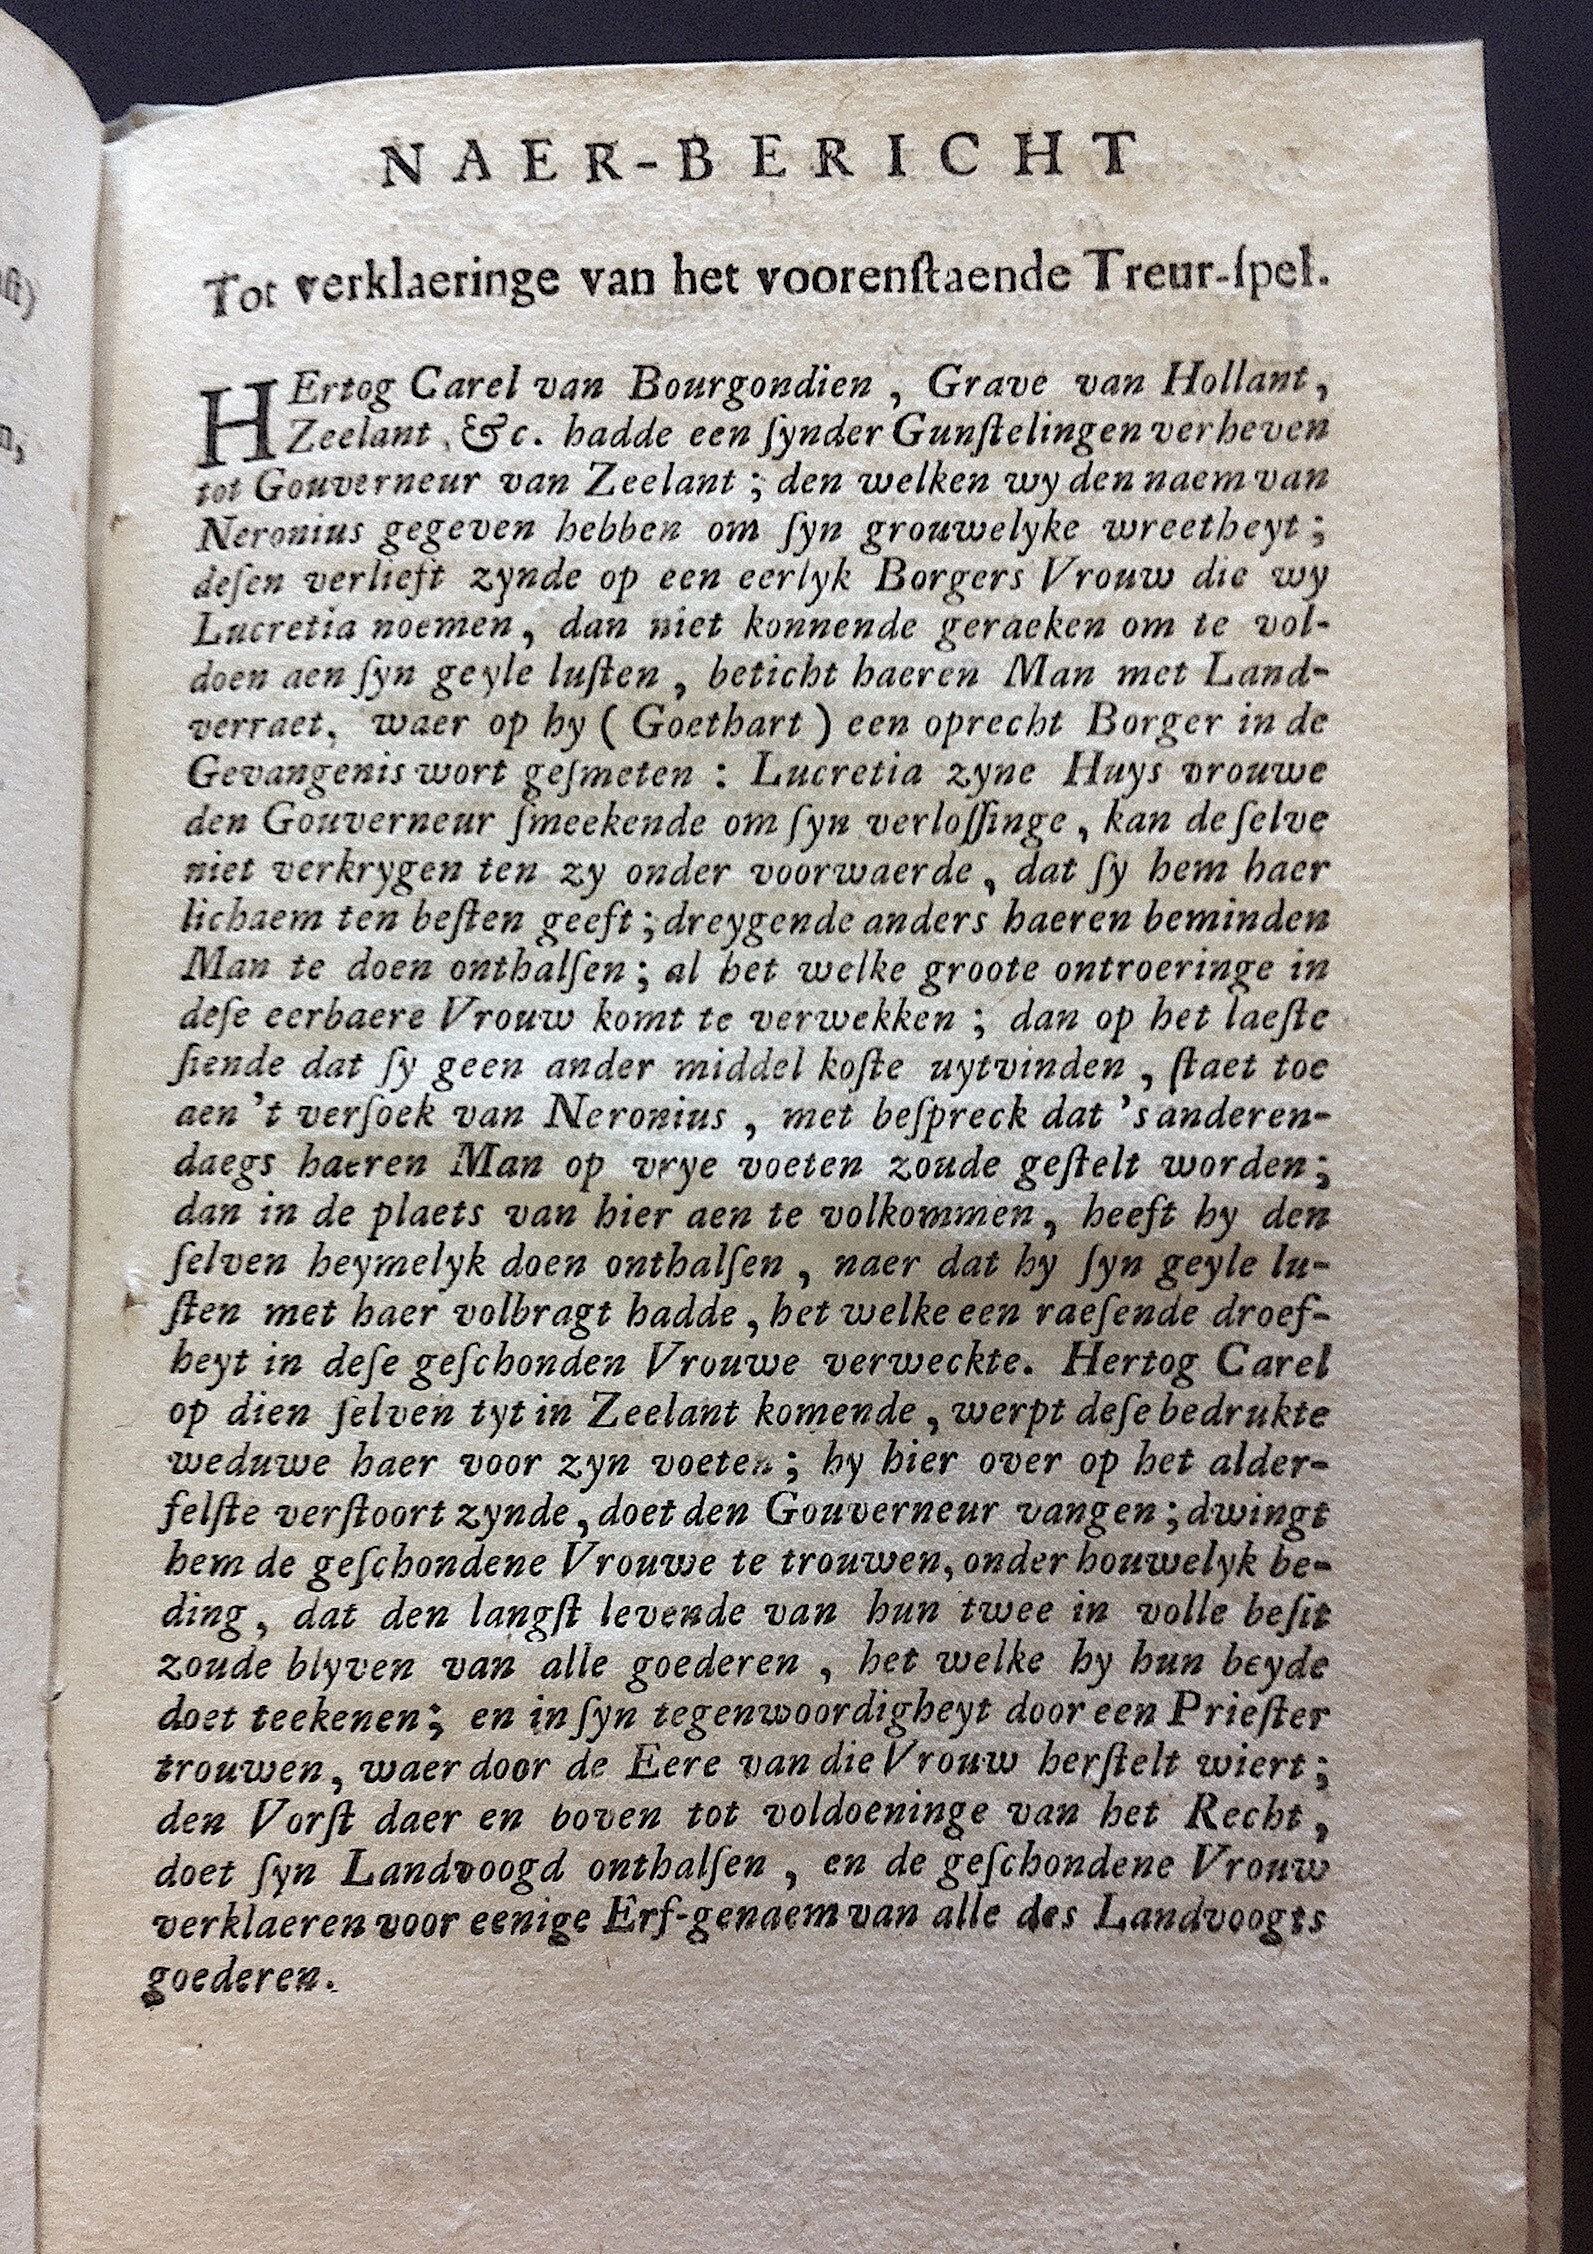 NAER-BERICHT
Tot verklaeringe van het voorenſtaende Treur-ſpel.
HErtog Carel van Bourgondien, Grave van Hollant,
Zeelant, &c. hadde een ſynder Gunſtelingen verheven
tot Gouverneur van Zeelant; den welken wy den naem van
Neronius gegeven hebben om ſyn grouwelyke wreetheyt;
deſen verlieft zynde op een eerlyk Borgers Vrouw die wy
Lucretia noemen, dan niet konnende geraeken om te vol-
doen aen ſyn geyle luſten, beticht haeren Man met Land-
verraet, waer op hy (Goethart) een oprecht Borger in de
Gevangenis wort geſmeten: Lucretia zyne Huys vrouwe
den Gouverneur ſmeekende om ſyn verloſſinge, kan de ſelve
niet verkrygen ten zy onder voorwaerde, dat ſy hem haer
lichaem ten beſten geeft; dreygende anders haeren beminden
Man te doen onthalſen; al het welke groote ontroeringe in
deſe eerbaere Vrouw komt te verwekken; dan op het laeſte
ſiende dat ſy geen ander middel koſte uytvinden, ſtaet toe
aen 't verſoek van Neronius, met beſpreck dat 's anderen-
daegs haeren Man op vrye voeten zoude geſtelt worden;
dan in de plaets van hier aen te volkommen, heeft hy den
ſelven heymelyk doen onthalſen, naer dat hy ſyn geyle lu-
ſten met haer volbragt hadde, het welke een raeſende droef-
heyt in deſe geſchonden Vrouwe verweckte. Hertog Carel
op dien ſelven tyt in Zeelant komende, werpt deſe bedrukte
weduwe haer voor zyn voeten; hy hier over op het alder-
felſte verſtoort zynde, doet den Gouverneur vangen; dwingt
hem de geſchondene Vrouwe te trouwen, onder houwelyk be-
ding, dat den langſt levende van hun twee in volle beſit
zoude blyven van alle goederen, het welke hy hun beyde
doet teekenen; en in ſyn tegenwoordigheyt door een Prieſter
trouwen, waer door de Eere van die Vrouw herſtelt wiert;
den Vorſt daer en boven tot voldoeninge van het Recht,
doet ſyn Landvoogd onthalſen, en de geſchondene Vrouw
verklaeren voor eenige Erf-genaem van alle des Landvoogts
goederen.